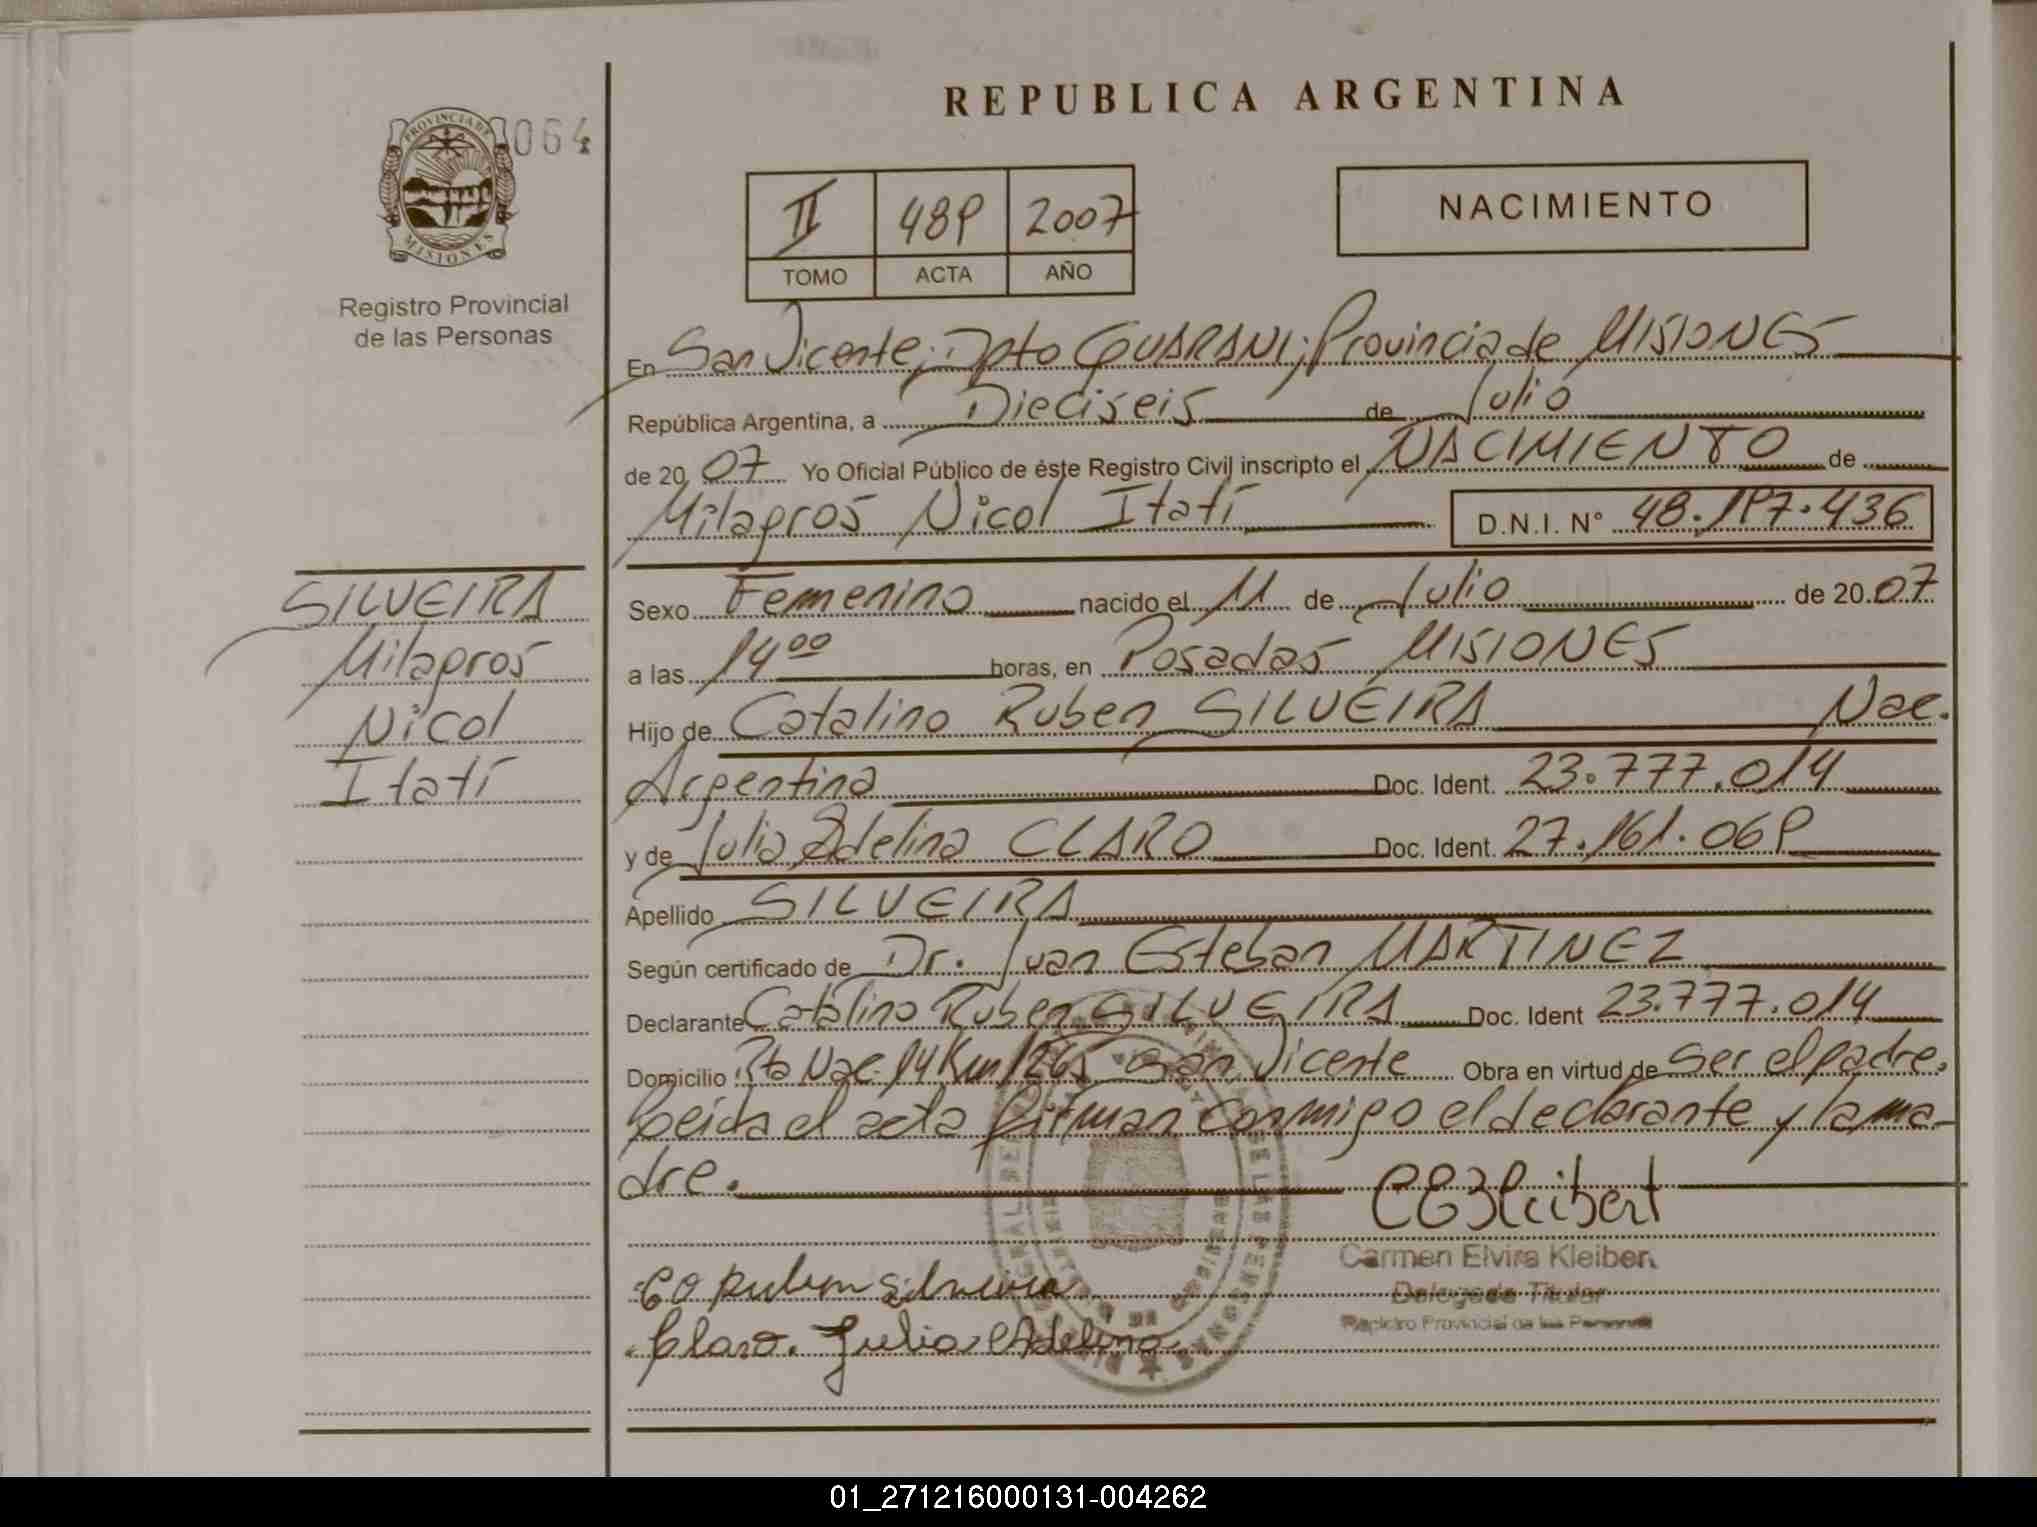 REPUBLICA ARGENTINA
PROVINCIA DE
MISIONES
064
Registro Provincial
de las Personas
II 489 2007
TOMO ACTA AÑO
NACIMIENTO
En San Vicente; Dpto GUARANI; Provincia de MISIONES
República Argentina, a Dieciseis de Julio
de 2007 Yo Oficial Público de éste Registro Civil inscripto el NACIMIENTO de
Milagros Nicol Itatí D.N.I. N° 48.197.436
SILVEIRA
Milagros
Nicol
Itatí
Sexo Femenino nacido el 11 de Julio de 2007
a las 14⁰⁰ horas, en Posadas MISIONES
Hijo de Catalino Ruben SILVEIRA Nac.
Argentina Doc. Ident. 23.777.014
y de Julia Adelina CLARO Doc. Ident. 27.161.069
Apellido SILVEIRA
Según certificado de Dr. Juan Esteban MARTINEZ
Declarante Catalino Ruben SILVEIRA Doc. Ident 23.777.014
Domicilio Rta Nac. 14 Km 1265 San Vicente Obra en virtud de ser el padre.
Leida el acta firman conmigo el declarante y la ma-
dre.
CEKleibert
Carmen Elvira Kleibert
Delegada Titular
Registro Provincial de las Personas
Ruben Silveira
Claro. Julia Adelina
01_271216000131-004262